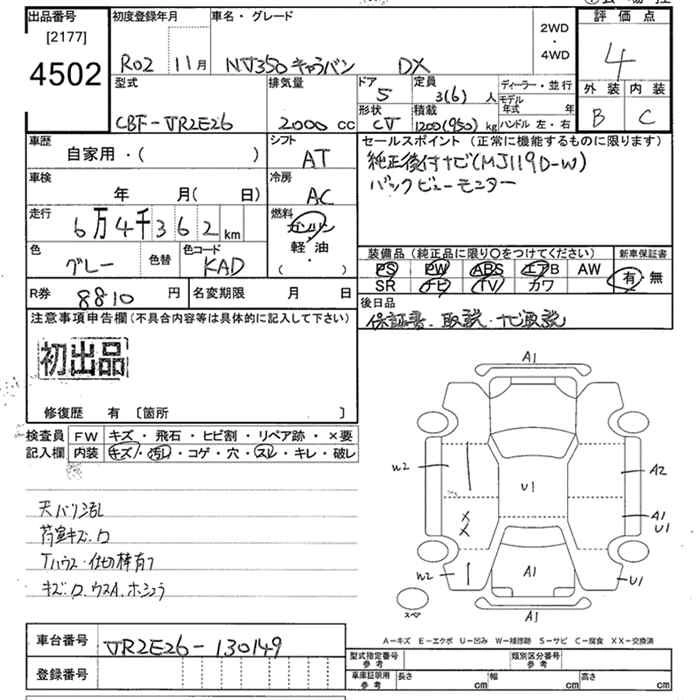 出品番号
[2177]
4502
初度登録年月
R02 11月
車名・グレード
NV350 キャラバン DX
2WD
・
4WD
評価点
4
外装 内装
B C
型式
CBF-VR2E26
排気量
2000 cc
ドア
5
定員
3(6) 人
形状
CV
積載
1200(950) kg
ディーラー・並行
モデル年式 年
ハンドル 左・右
車歴
自家用・( )
シフト
AT
車検
年 月(日)
冷房
AC
走行
6万4千362km
燃料
ガソリン
軽・油
( ・ )
色
グレー
色替
色コード
KAD
R券
8810 円
名変期限 月 日
セールスポイント(正常に機能するものに限ります)
純正後付ナビ(MJ119D-W)
バックビューモニター
装備品(純正品に限り〇をつけてください)
新車保証書
PS PW ABS エアB AW
SR ナビ TV カワ
有・無
後日品
保証書・取説・ナビ取説
注意事項申告欄(不具合内容等は具体的に記入して下さい)
初出品
修復歴 有 〔箇所 〕
検査員記入欄
FW キズ・飛石・ヒビ割・リペア跡・×要
内装 キズ・汚レ・コゲ・穴・スレ・キレ・破レ
天バリ汚
荷室キズ、ロ
Tハウス・仕切棒有
キズ、ロ、ウスA、ホシュウ
A1
W2
U1
A2
X
X
A1
U1
W2
A1
U1
スペア
A1
A−キズ E−エクボ U−凹み W−補修跡 S−サビ C−腐食 XX−交換済
車台番号
VR2E26-130149
登録番号
型式指定番号
参考
類別区分番号
参考
車庫証明用
参考
長さ cm 幅 cm 高さ cm